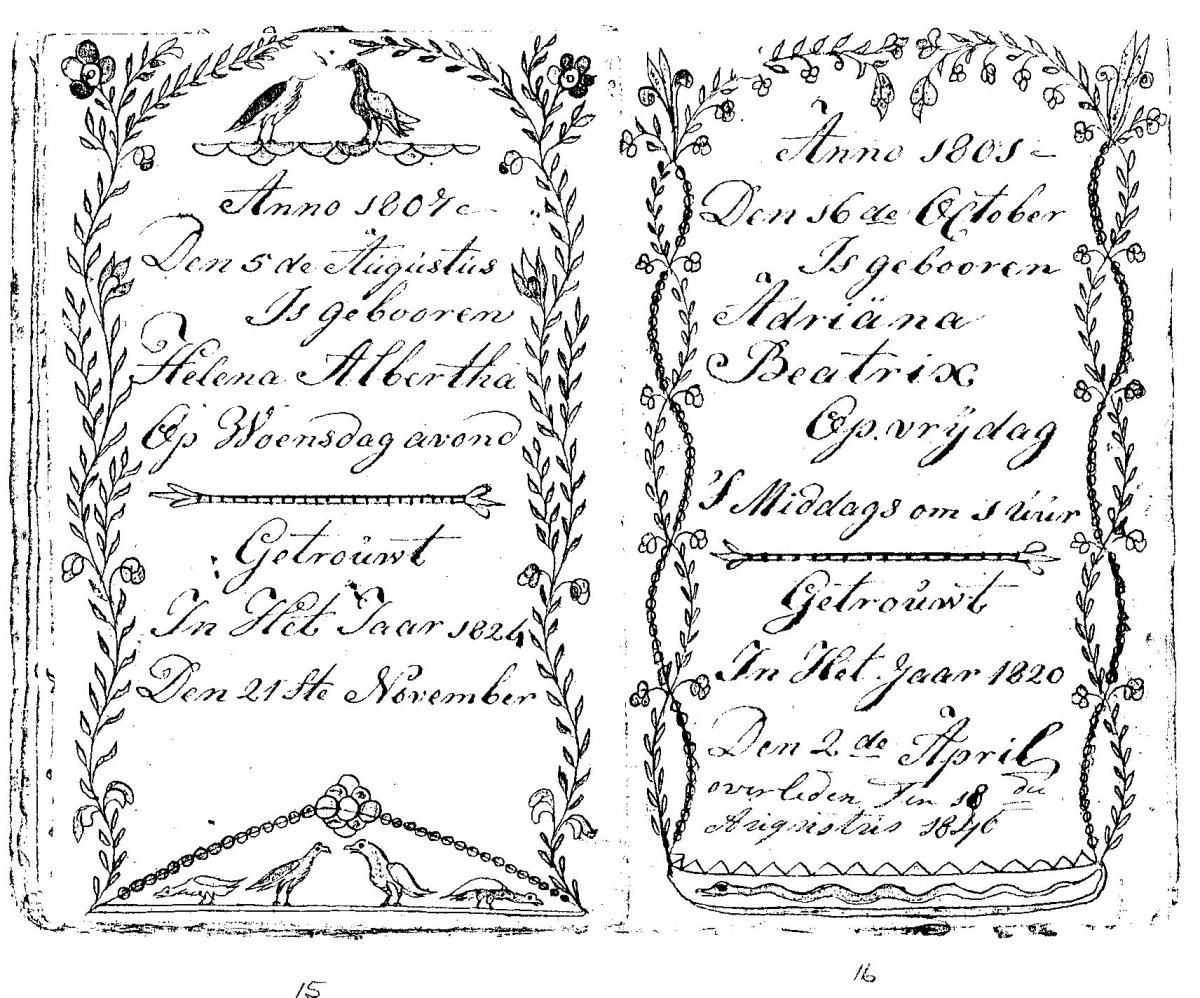 Anno 1807
Den 5 de Augustus
Is gebooren
Helena Albertha
Op Woensdag avond
Getrouwt
In Het Jaar 1824
Den 21 Ste November
15
Anno 1801
Den 16 de October
Is gebooren
Adriäna
Beatrix
Op vrÿdag
'S Middags om 1 Uur
Getrouwt
In Het Jaar 1820
Den 2 de April
overleden Den 18 de
Augustus 1846
16